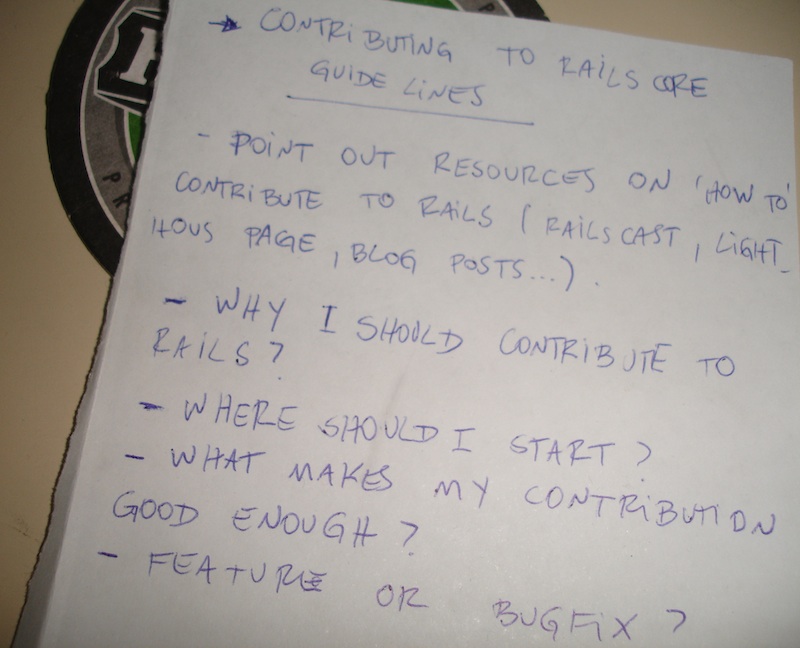 → CONTRIBUTING TO RAILS CORE
GUIDE LINES
- POINT OUT RESOURCES ON 'HOW TO'
CONTRIBUTE TO RAILS (RAILSCAST, LIGHT_
HOUS PAGE, BLOG POSTS...).
- WHY I SHOULD CONTRIBUTE TO
RAILS?
- WHERE SHOULD I START?
- WHAT MAKES MY CONTRIBUTION
GOOD ENOUGH?
- FEATURE OR BUGFIX?